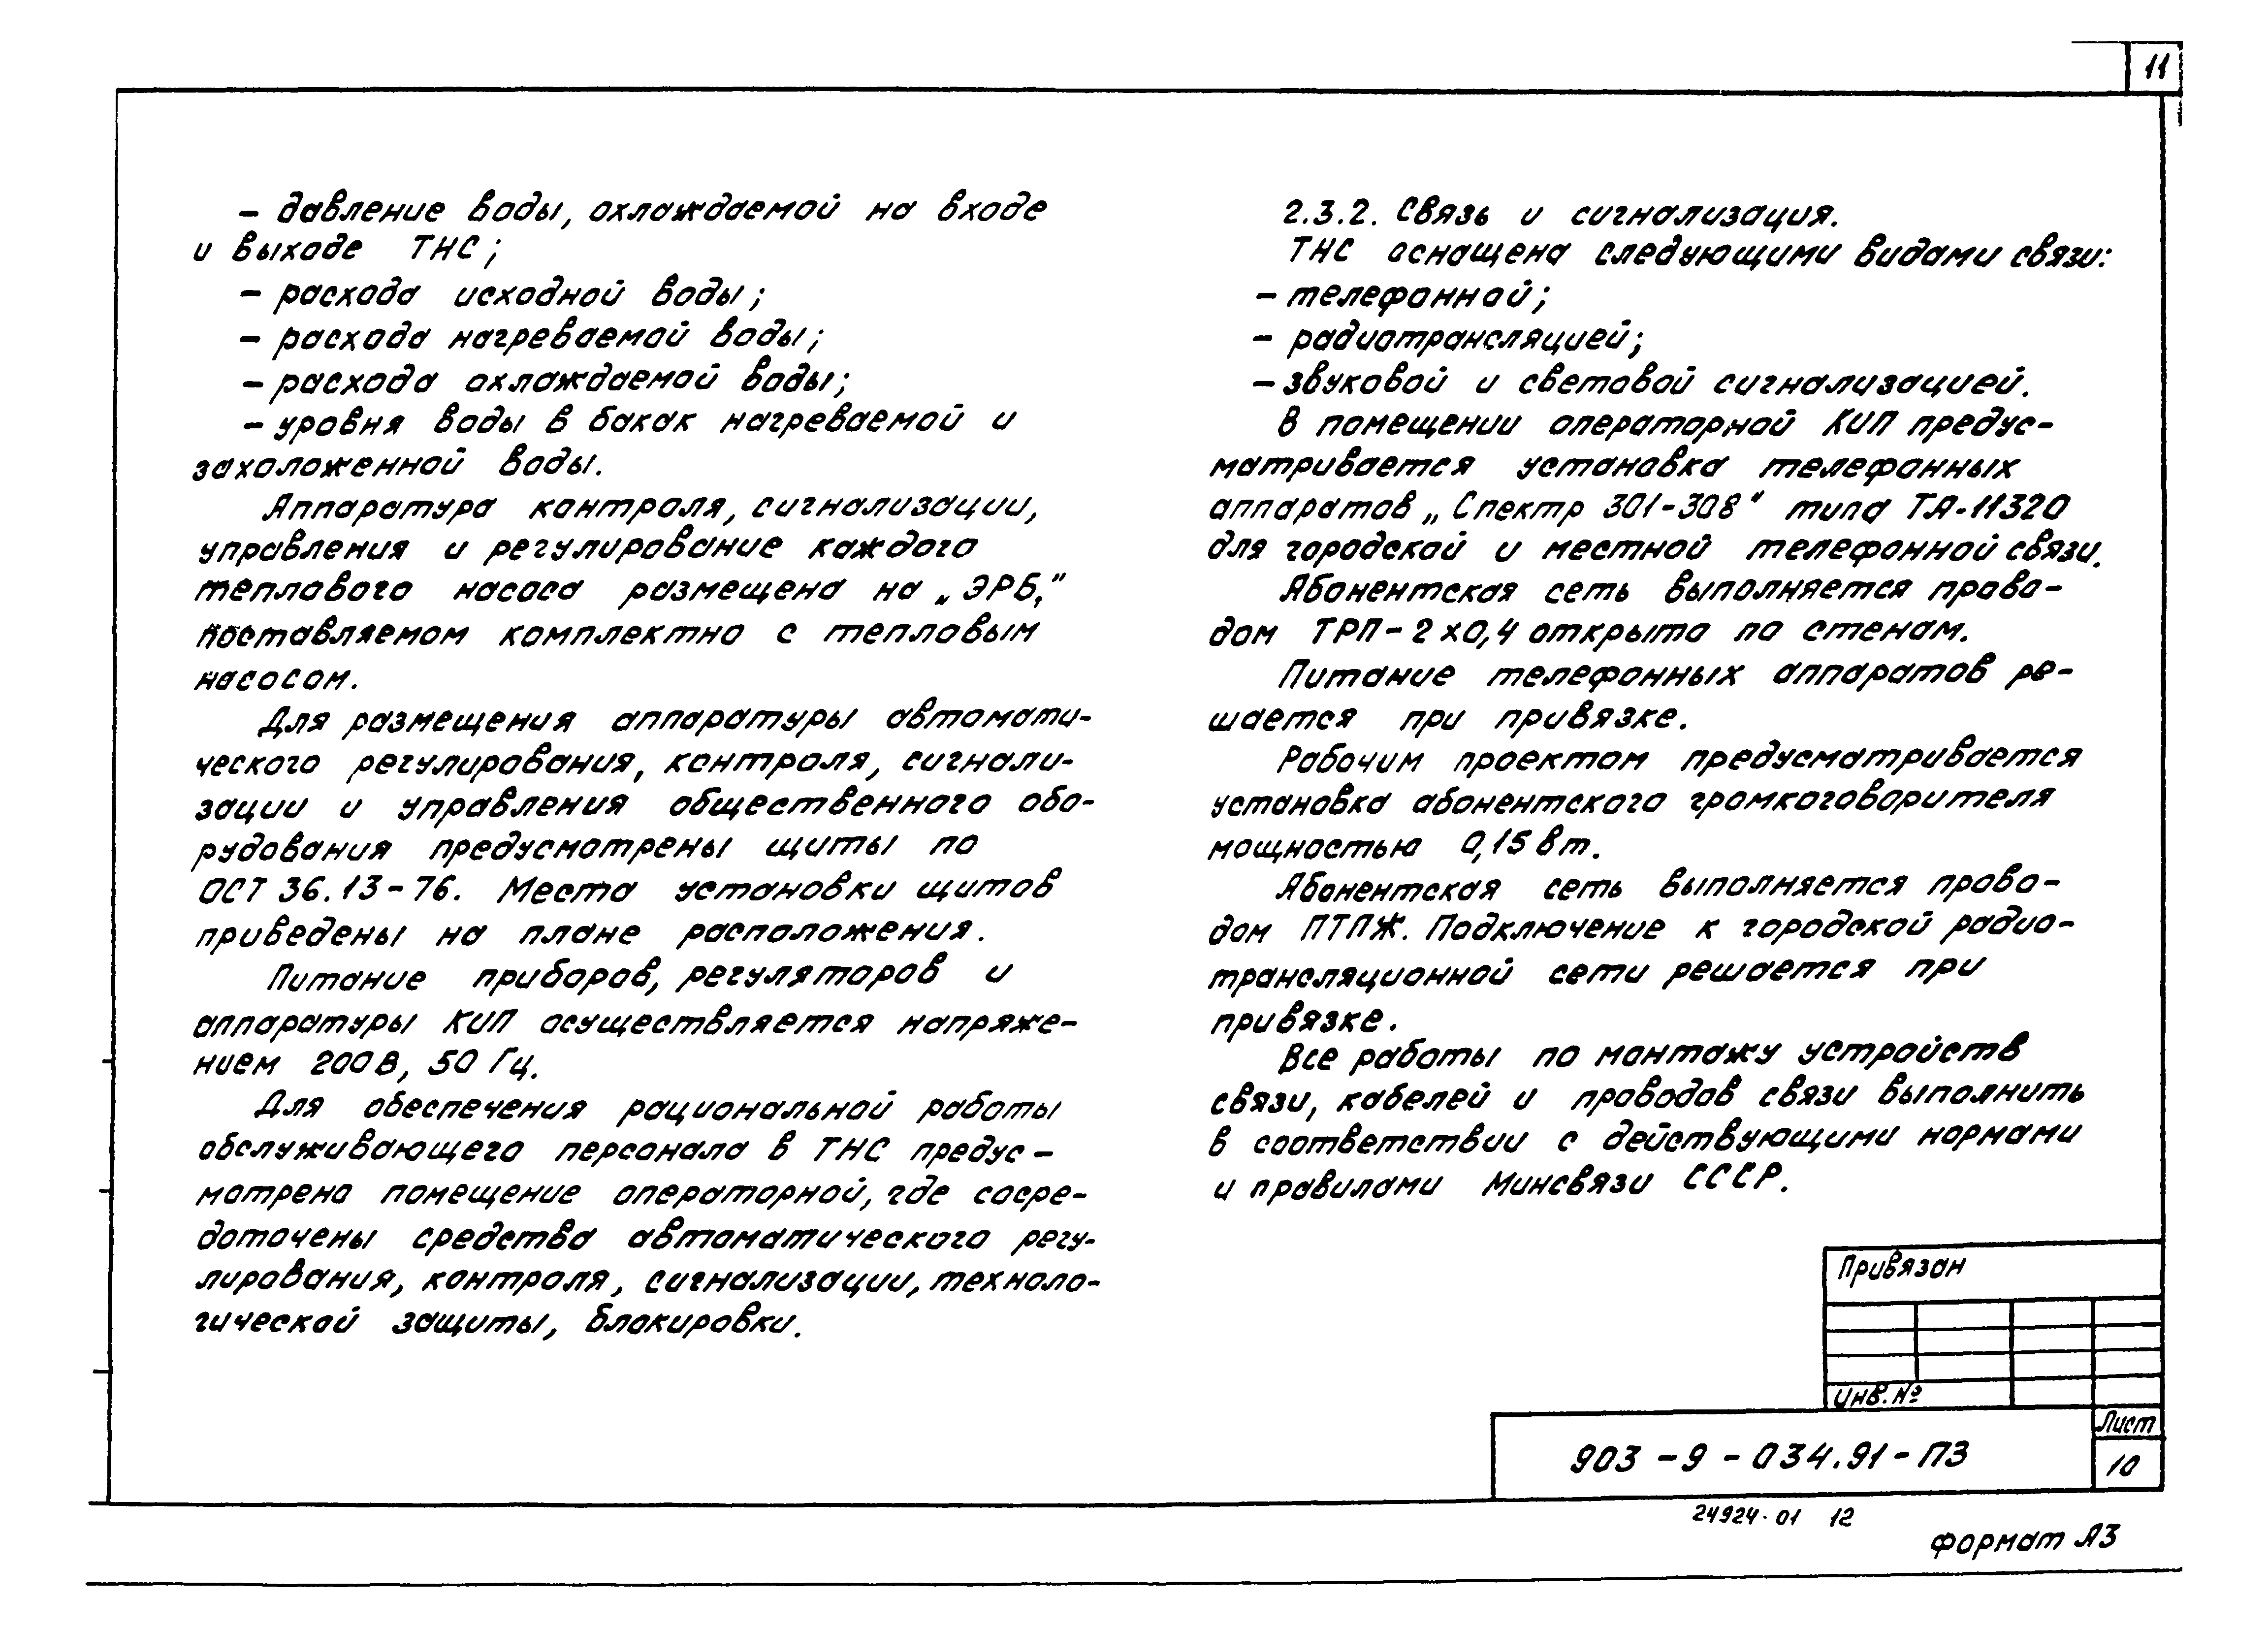 11
– давление воды, охлаждаемой на входе
и выходе ТНС;
– расхода исходной воды;
– расхода нагреваемой воды;
– расхода охлаждаемой воды;
– уровня воды в баках нагреваемой и
захоложенной воды.
Аппаратура контроля, сигнализации,
управления и регулирование каждого
теплового насоса размещена на „ЭРБ,“
поставляемом комплектно с тепловым
насосом.
Для размещения аппаратуры автомати-
ческого регулирования, контроля, сигнали-
зации и управления общественного обо-
рудования предусмотрены щиты по
ОСТ 36.13-76. Места установки щитов
приведены на плане расположения.
Питание приборов, регуляторов и
аппаратуры КИП осуществляется напряже-
нием 200В, 50 Гц.
Для обеспечения рациональной работы
обслуживающего персонала в ТНС предус-
мотрено помещение операторной, где сосре-
доточены средства автоматического регу-
лирования, контроля, сигнализации, техноло-
гической защиты, блокировки.
2.3.2. Связь и сигнализация.
ТНС оснащена следующими видами связи:
– телефонной;
– радиотрансляцией;
– звуковой и световой сигнализацией.
В помещении операторной КИП предус-
матривается установка телефонных
аппаратов „Спектр 301-308“ типа ТА-11320
для городской и местной телефонной связи.
Абонентская сеть выполняется прово-
дом ТРП-2х0,4 открыто по стенам.
Питание телефонных аппаратов ре-
шается при привязке.
Рабочим проектом предусматривается
установка абонентского громкоговорителя
мощностью 0,15 Вт.
Абонентская сеть выполняется прово-
дом ПТПЖ. Подключение к городской радио-
трансляционной сети решается при
привязке.
Все работы по монтажу устройств
связи, кабелей и проводов связи выполнить
в соответствии с действующими нормами
и правилами Минсвязи СССР.
Привязан
Инв.№
903-9-034.91-ПЗ
Лист
10
24924-01 12
Формат А3